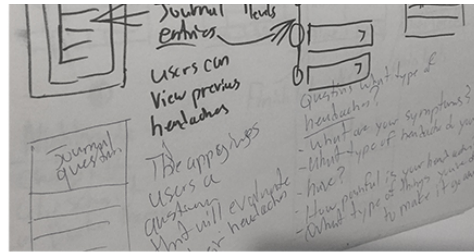 Journal
entries
users can
view previous
headaches
Journal
question
The app gives
users a
question
that will evaluate
headaches
Question what type of
headaches?
- What are your symptoms?
- What type of headache
have?
- How painful is your
What type of things
to make it